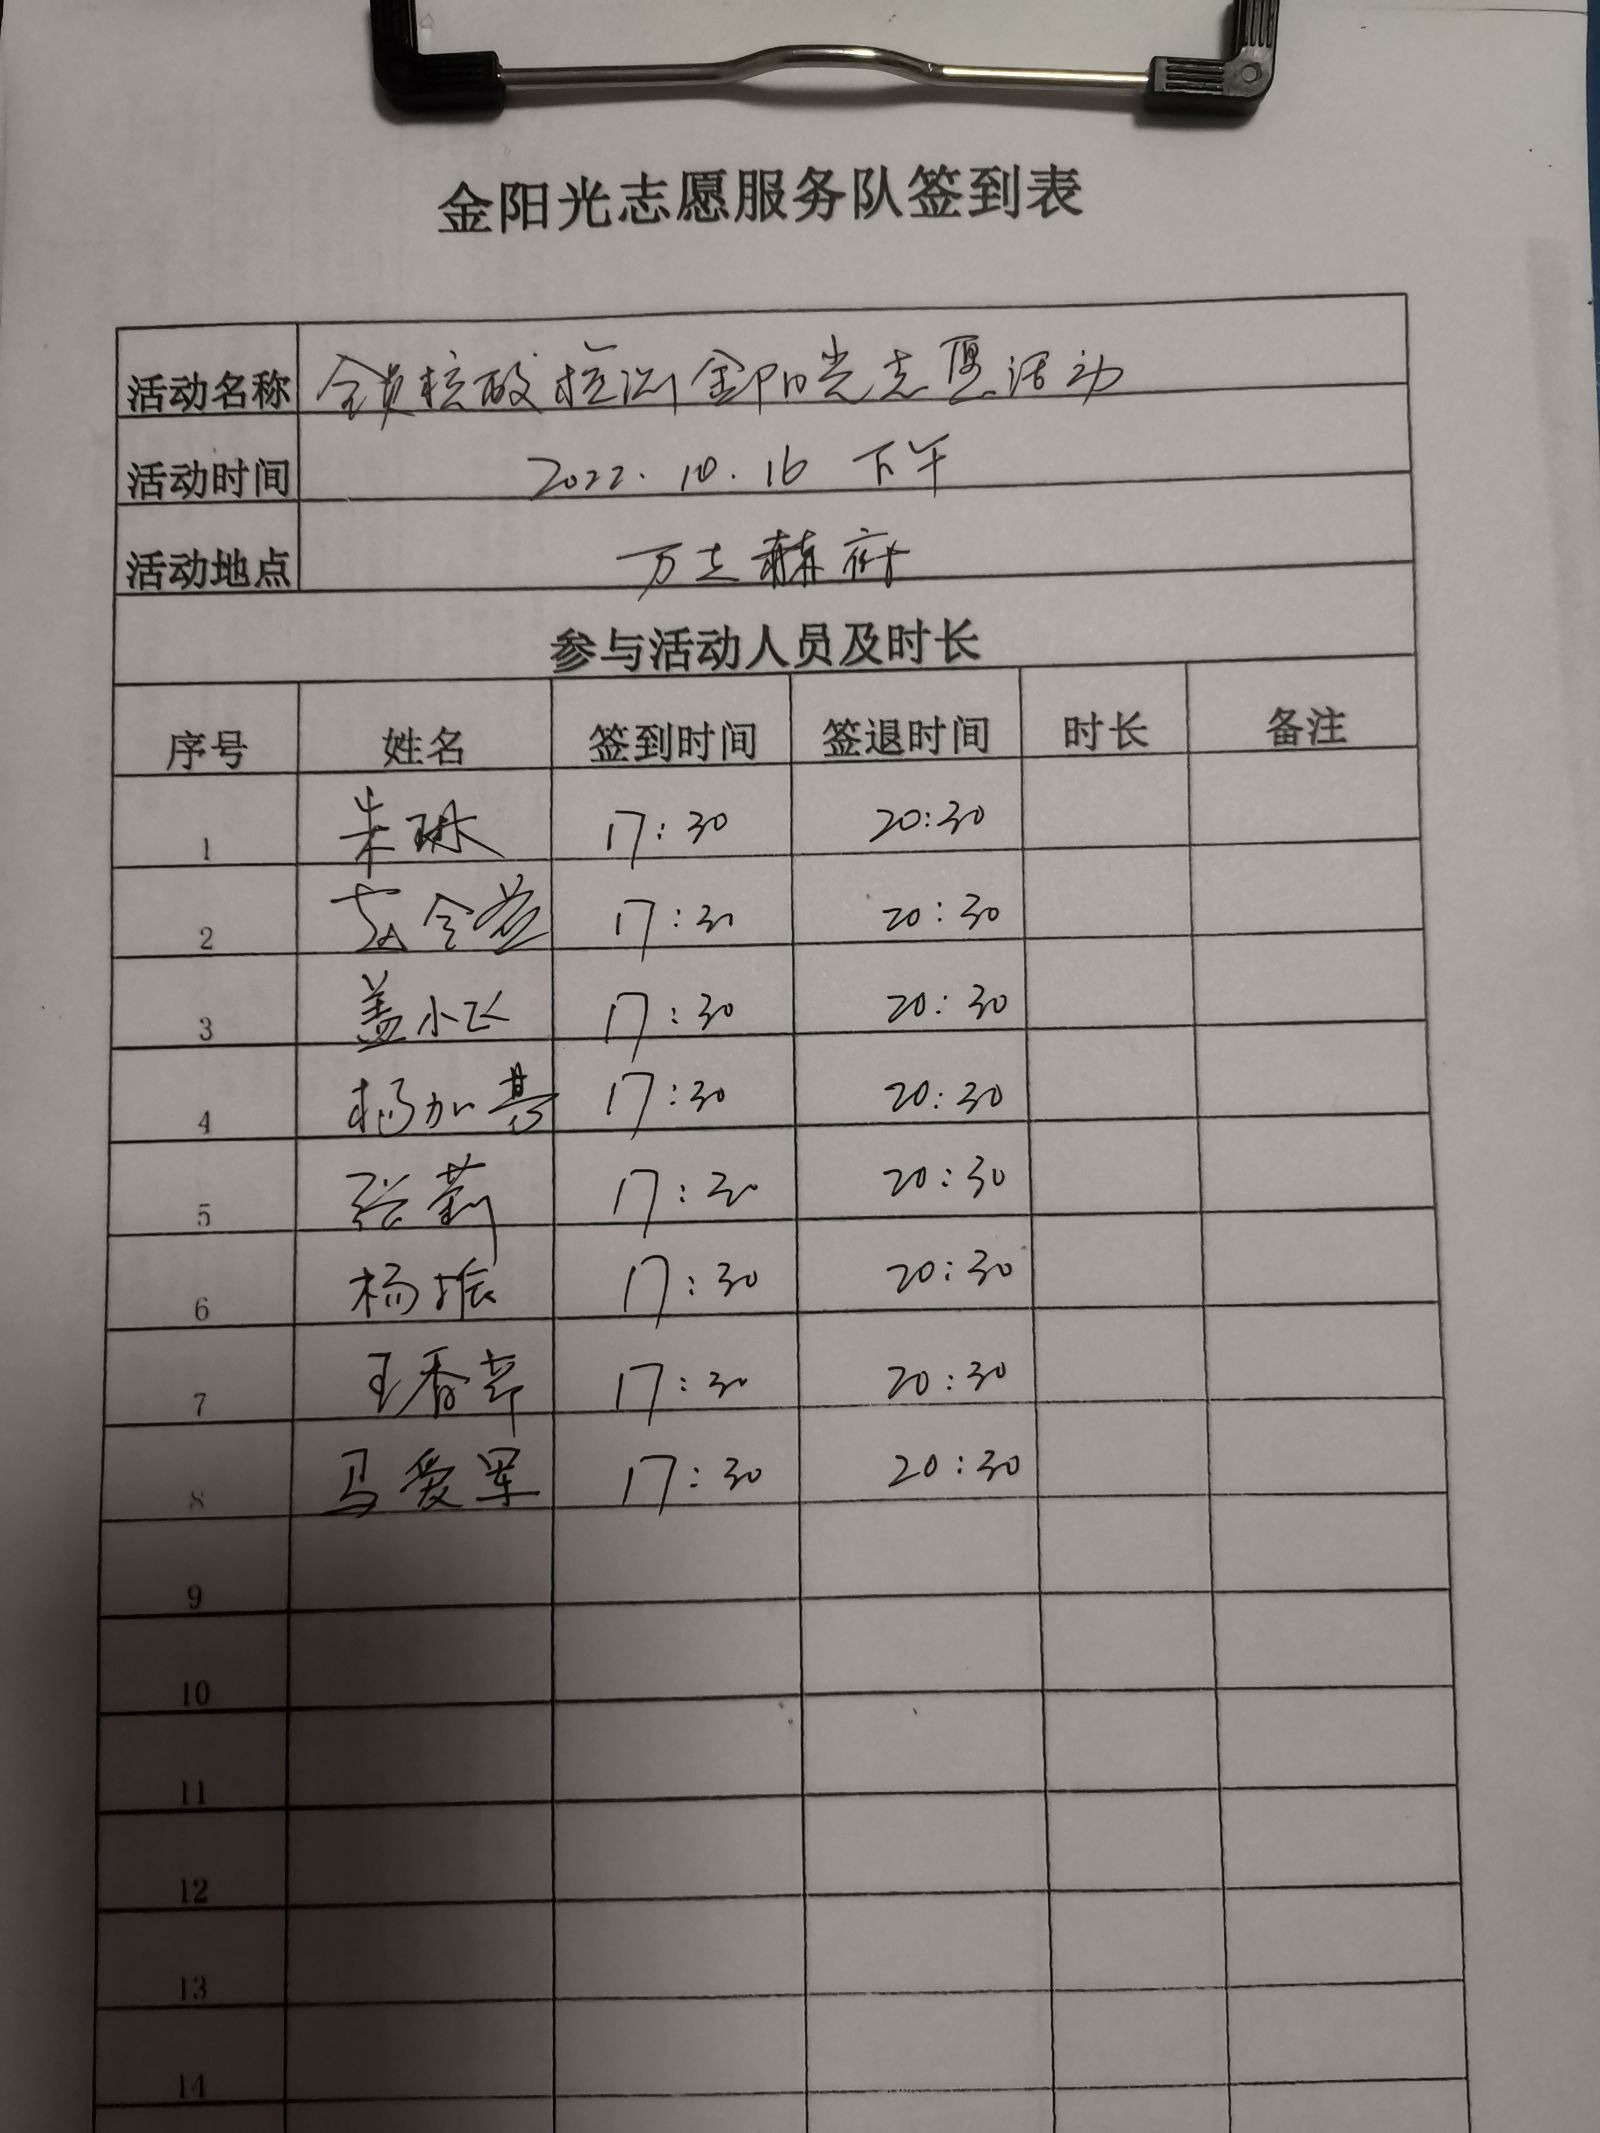 金阳光志愿服务队签到表
活动名称 全员核酸检测金阳光志愿活动
活动时间 2022.10.16 下午
活动地点 万达赫府
参与活动人员及时长
序号 姓名 签到时间 签退时间 时长 备注
1 朱琳 17:30 20:30
2 17:30 20:30
3 盖小飞 17:30 20:30
4 杨加 17:30 20:30
5 张莉 17:30 20:30
6 杨振 17:30 20:30
7 王香芹 17:30 20:30
8 马爱军 17:30 20:30
9
10
11
12
13
14